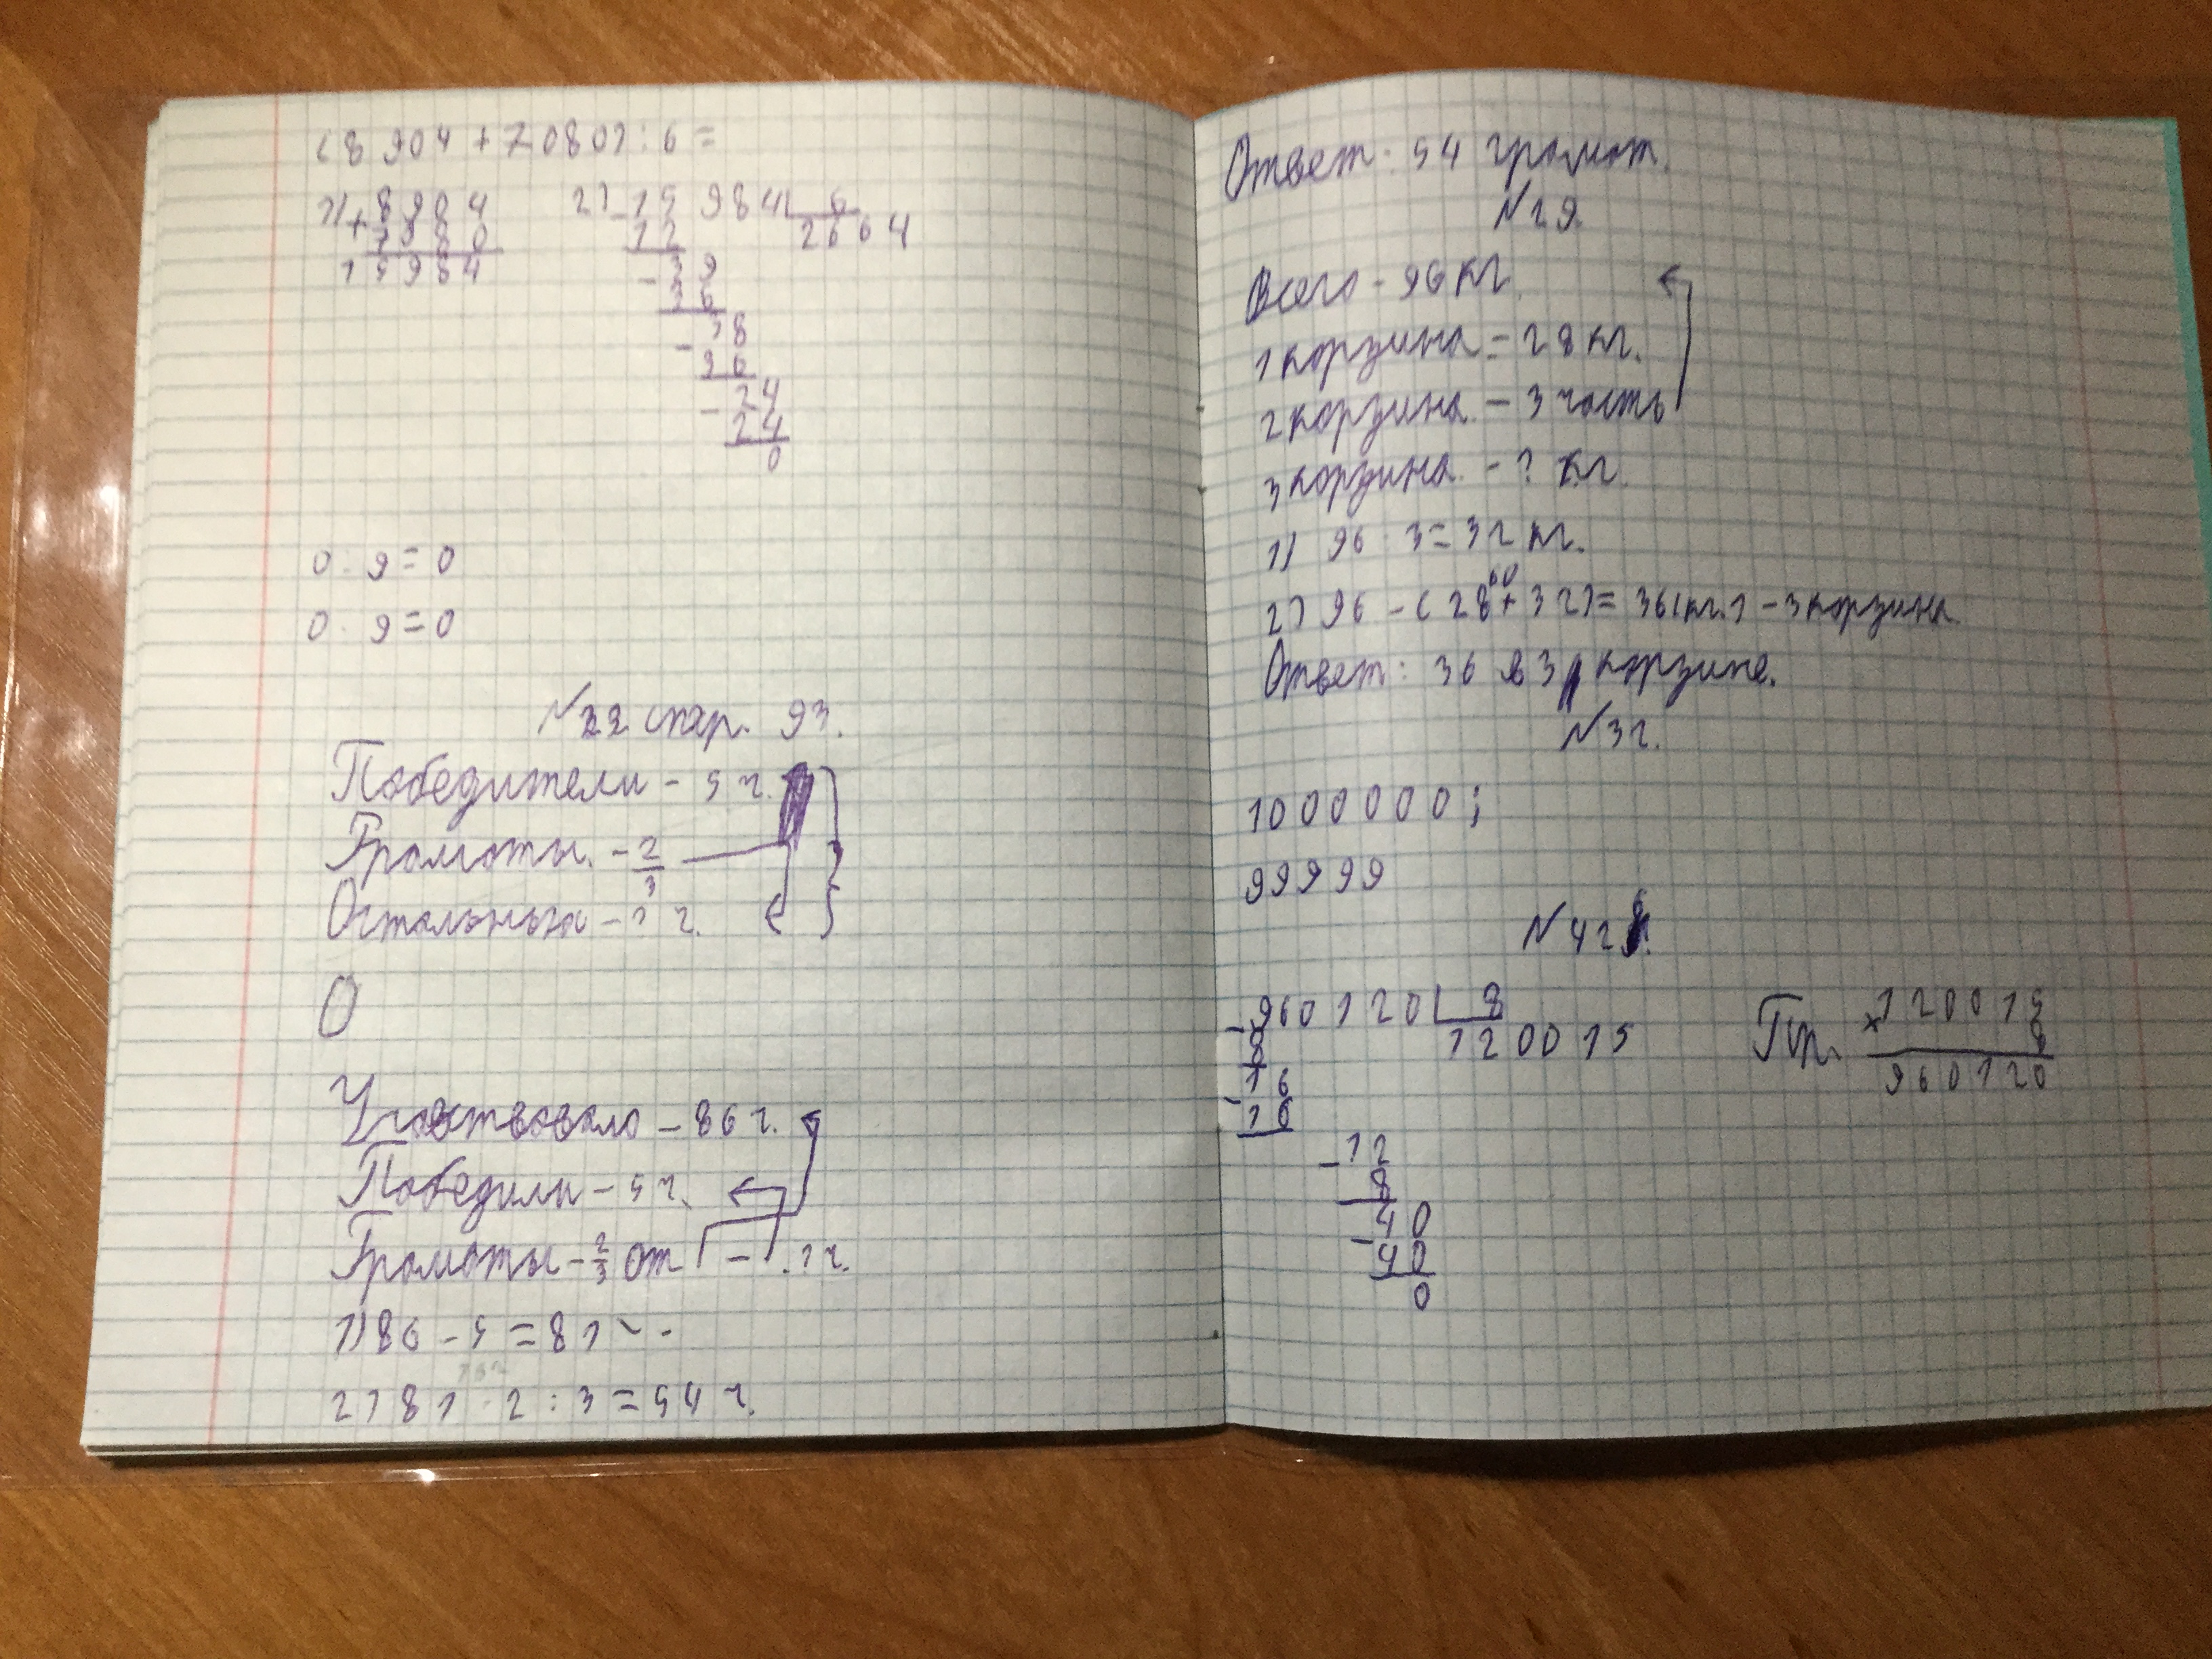 (8 904 + 7 080) : 6 =
1) + 8904
7080
15984
2) - 15 984 | 6
12 2664
- 39
36
- 38
36
- 24
24
0
0 : 9 = 0
0 · 9 = 0
N22 стр. 93.
Победители - 5 ч.
Грамоты. - 2/3
Остальных - ? ч.
О
Участвовало - 86 ч.
Победили - 5 ч.
Грамоты - 2/3 от - ? ч.
1) 86 - 5 = 81
2) 81 · 2 : 3 = 54 ч.
Ответ: 54 грамот.
N29.
Всего - 96 кг.
1 корзина = 28 кг.
2 корзина - 3 часть
3 корзина - ? кг.
1) 96 : 3 = 32 кг.
60
2) 96 - (28 + 32) = 36(кг.) - 3 корзина.
Ответ: 36 в 3 корзине.
N32.
1000000;
99999
N42
- 960120 | 8
8 120015
- 16
16
- 12
8
- 40
40
0
Пр. × 120015
8
960120